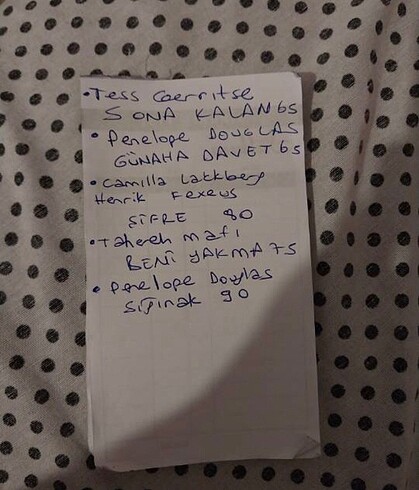 • Tess Gerritse
SONA KALAN 65
• Penelope DOUGLAS
GÜNAHA DAVET 65
• Camilla Lackberg
Henrik Fexeus
ŞİFRE 80
• Tahereh mafi
BENİ YAKMA 75
• Penelope Douglas
SIĞINAK 90